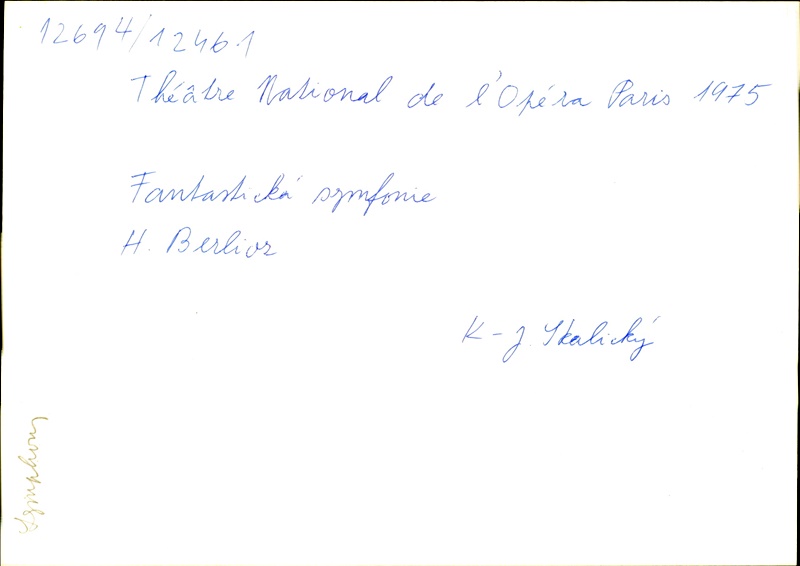 12694/12461
Théâtre National de l'Opéra Paris 1975
Fantastická symfonie
H. Berlioz
K - J. Skalický
Symphony